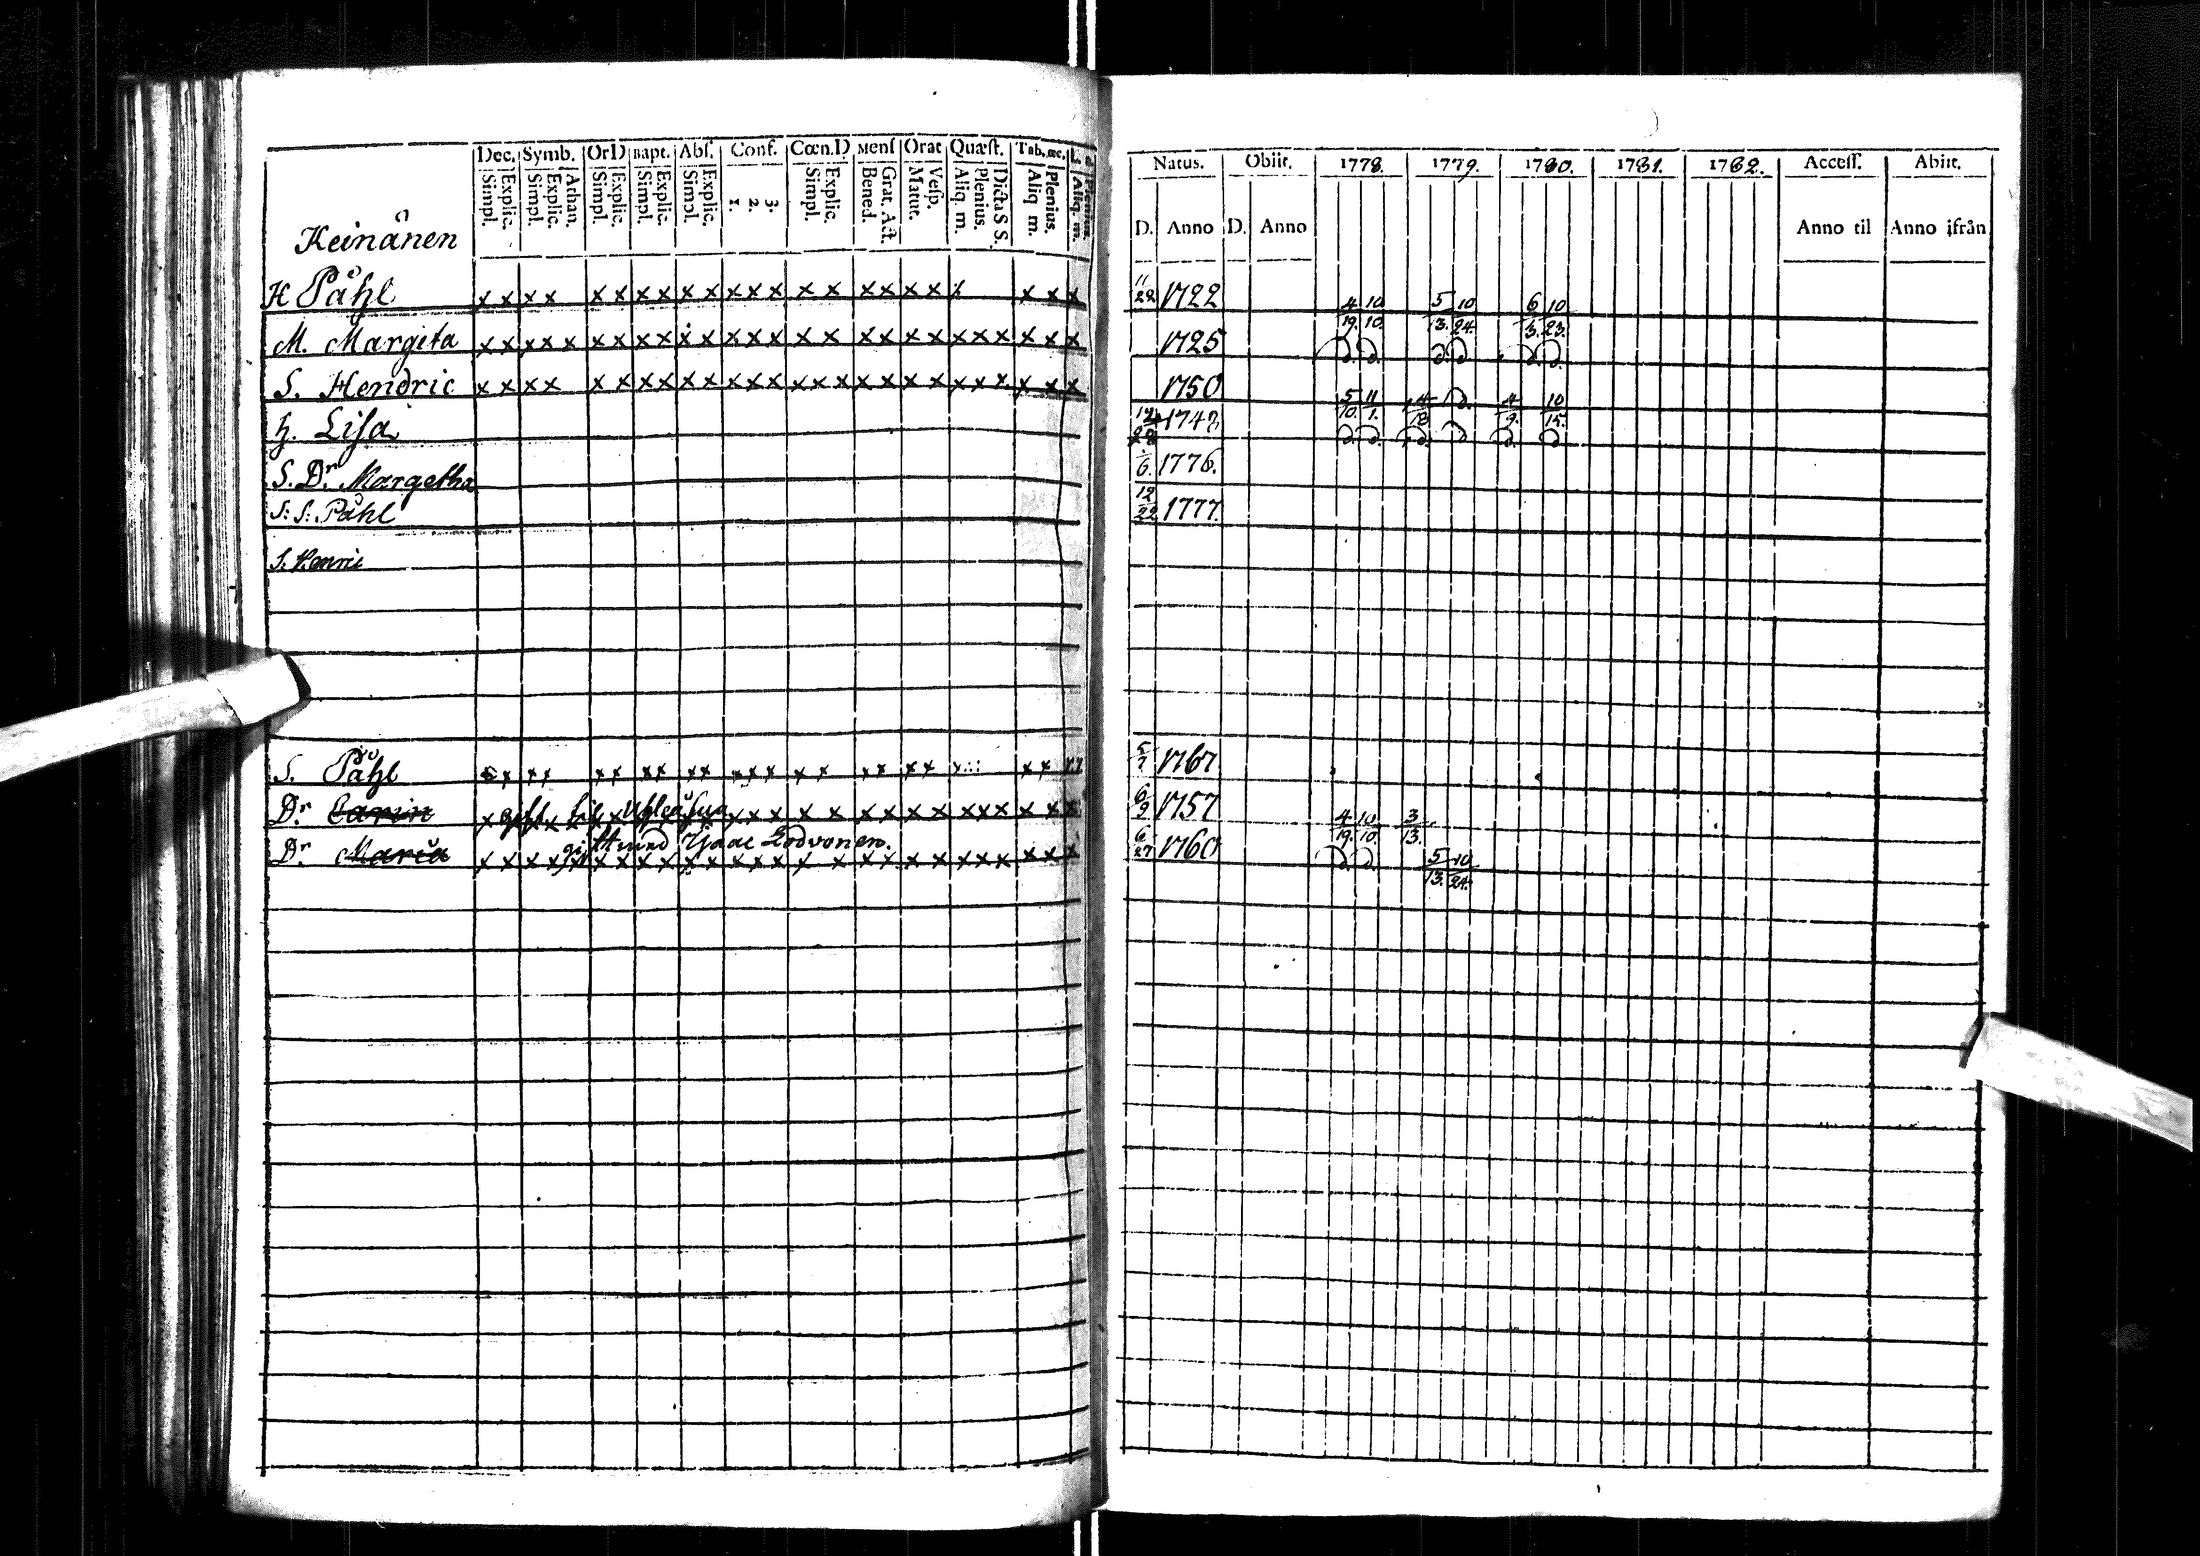 Dec. Symb. OrD Bapt. Abs. Conf. Cœn.D Mens Orat Quæst. Tab. œc.
Simpl. Explic. Simpl. Explic. Athan. Simpl. Explic. Simpl. Explic. Simpl. Explic. 1. 2. 3. Simpl. Explic. Bened. Grat. Act. Matut. Vesp. Aliq. m. Plenius. Dicta S S. Aliq. m. Plenius. Aliq. m. Plenius.
Keinånen
H Påhl x x x x x x x x x x x x x x x x x x x x x x x
M. Margeta x x x x x x x x x x x x x x x x x x x x x x x x x x
S. Hendric x x x x x x x x x x x x x x x x x x x x x x x x x x
h. Lisa
S. Dr. Margetha
S: S: Påhl
S. Henric
S. Påhl x x x x x x x x x x x x x x x x x x x
Dr Carin
Dr Maria
Natus. Obiit. 1778. 1779. 1780. 1781. 1782. Access. Abiit.
D. Anno D. Anno Anno til Anno ifrån
11/22 1722 4/19. 10/10. 5/13. 10/24. 6/3. 10/23.
1725
1750 5/10. 11/1. 4/9. 10/15.
1748
6. 1776.
12/22 1777.
5/7 1767
6/9 1757 4/19. 10/10. 3/13.
6/27 1760 5/13. 10/24.